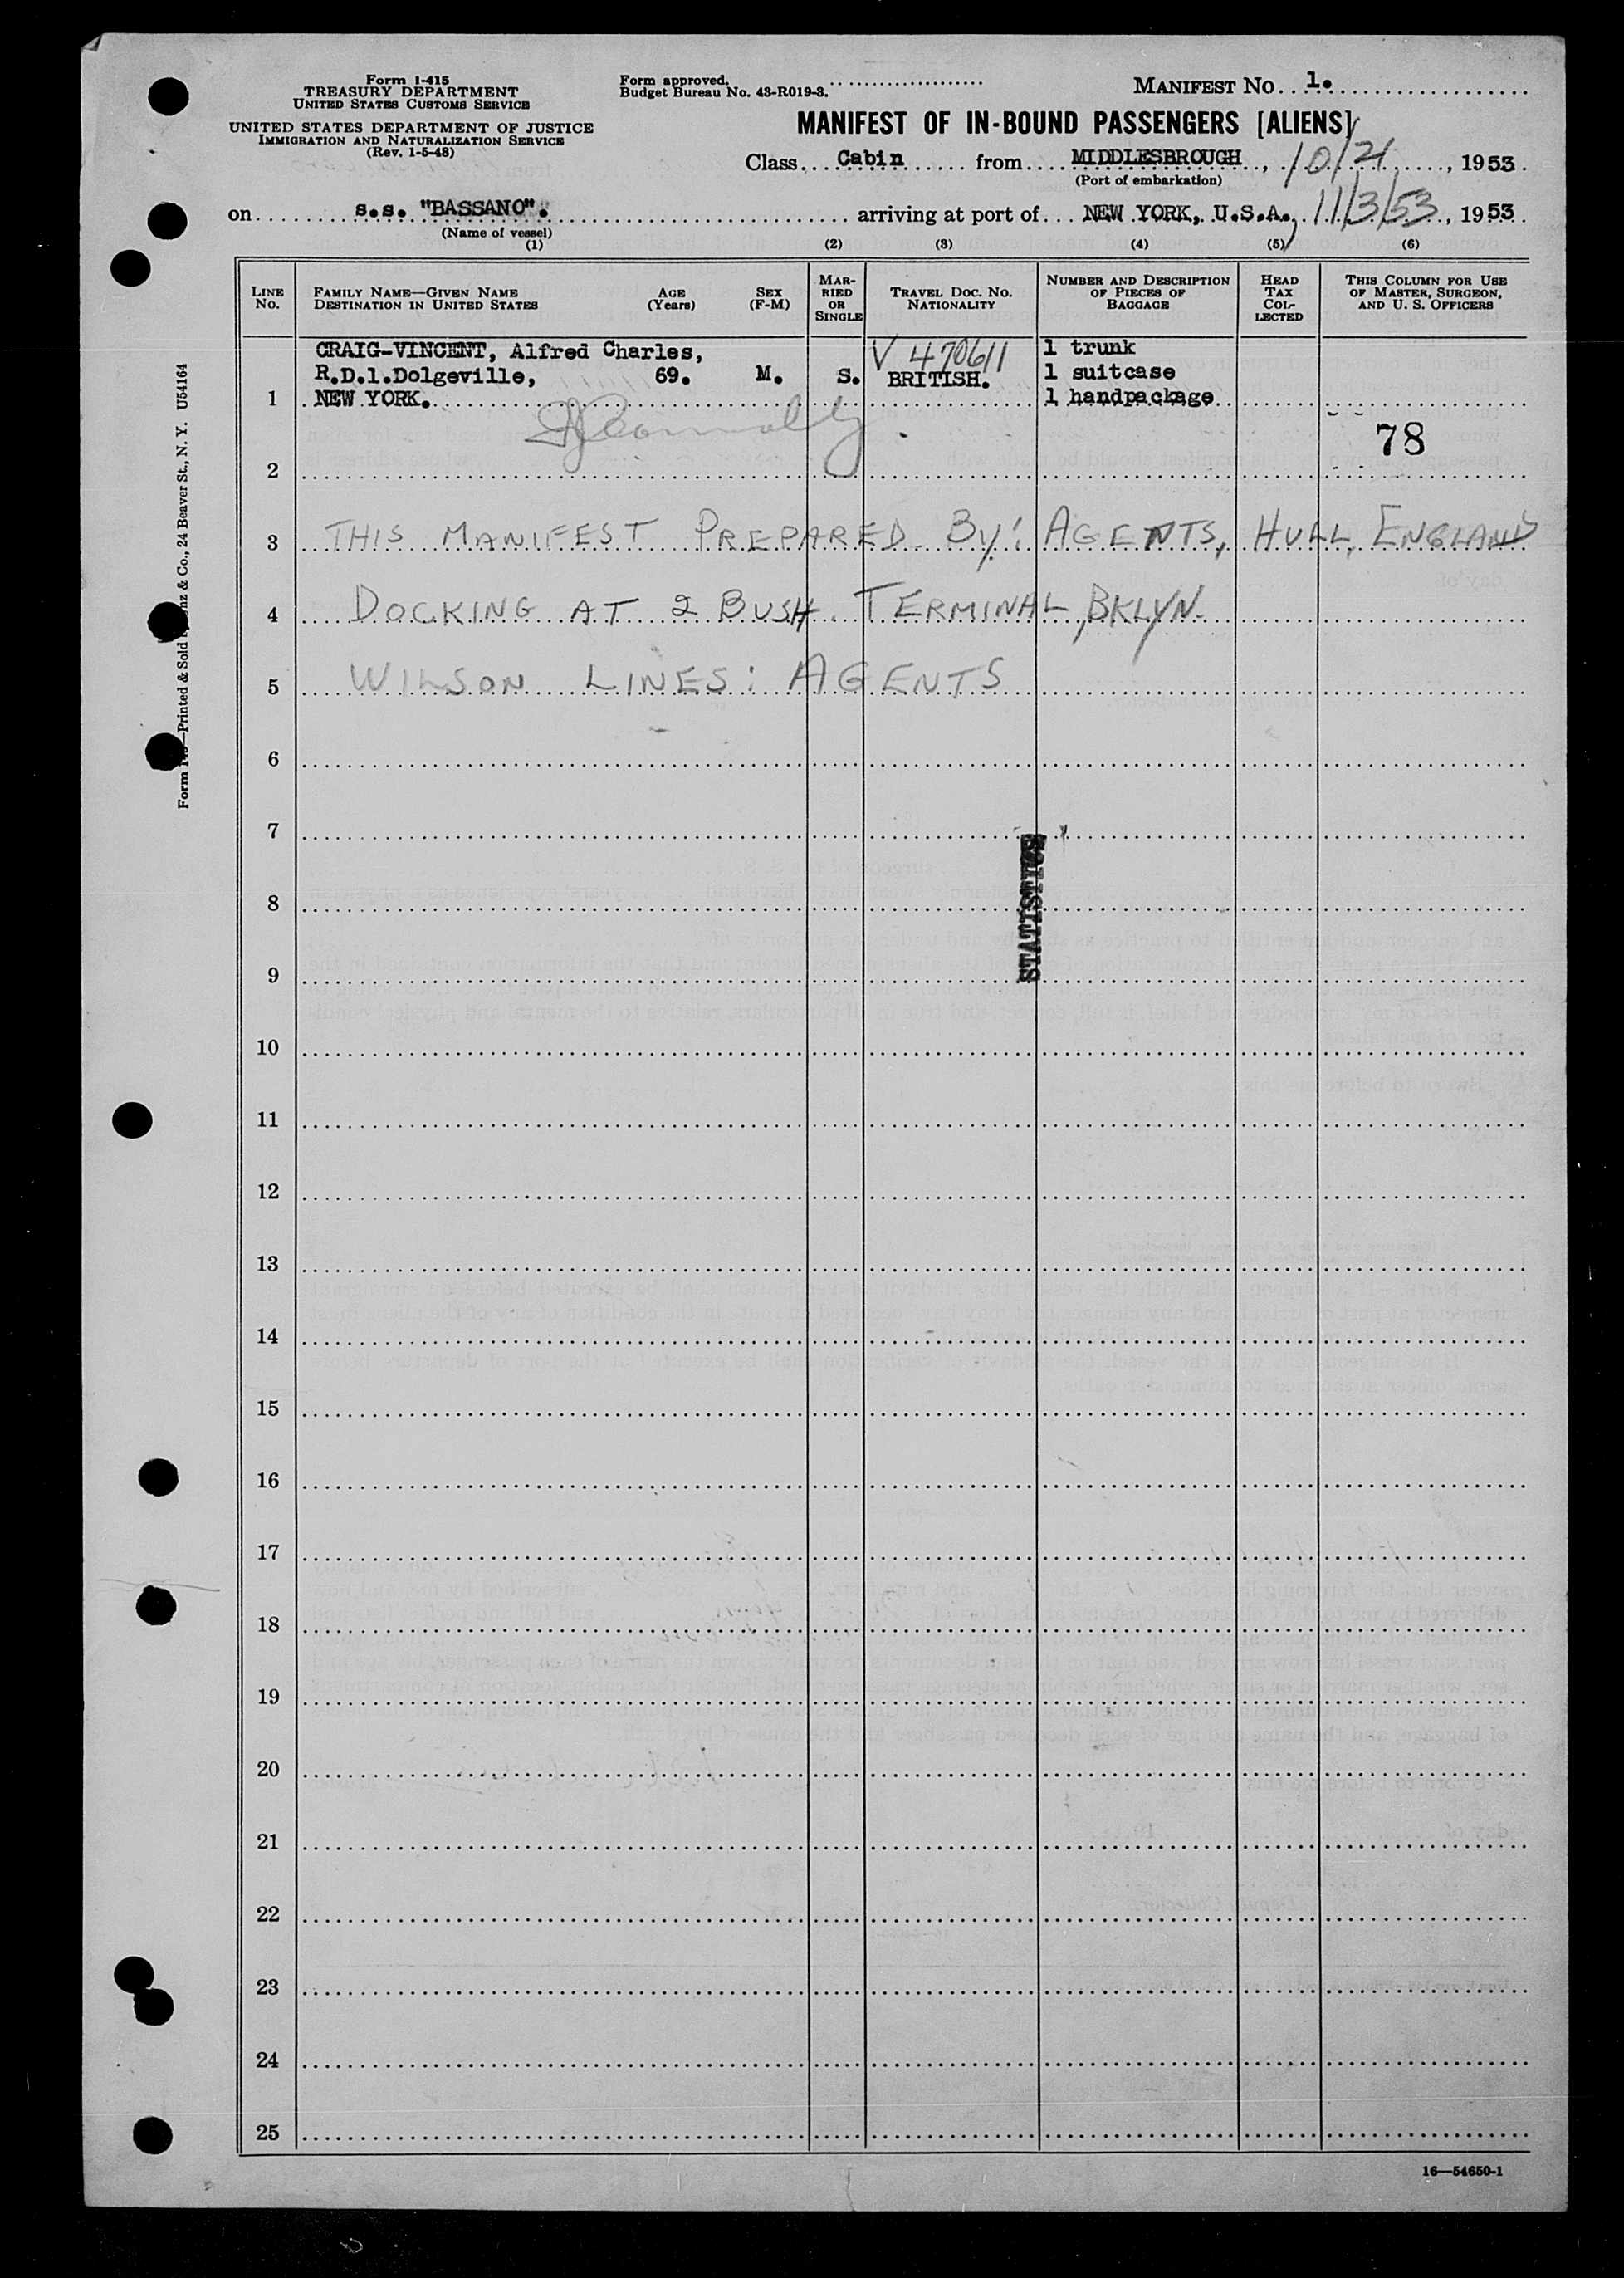 Form I-415
TREASURY DEPARTMENT
UNITED STATES CUSTOMS SERVICE
UNITED STATES DEPARTMENT OF JUSTICE
IMMIGRATION AND NATURALIZATION SERVICE
(Rev. 1-5-48)
Form approved.
Budget Bureau No. 43-R019-3.
MANIFEST NO. 1.
MANIFEST OF IN-BOUND PASSENGERS [ALIENS]
Class Cabin from MIDDLESBROUGH, 10/21, 1953.
(Port of embarkation)
on s.s. "BASSANO". arriving at port of NEW YORK, U.S.A., 11/3/53, 1953.
(Name of vessel)
(1) (2) (3) (4) (5) (6)
LINE NO. FAMILY NAME—GIVEN NAME DESTINATION IN UNITED STATES AGE (Years) SEX (F-M) MARRIED OR SINGLE TRAVEL DOC. NO. NATIONALITY NUMBER AND DESCRIPTION OF PIECES OF BAGGAGE HEAD TAX COLLECTED THIS COLUMN FOR USE OF MASTER, SURGEON, AND U. S. OFFICERS
CRAIG-VINCENT, Alfred Charles, V 470611 1 trunk
R.D.1.Dolgeville, 69. M. S. BRITISH. 1 suitcase
1 NEW YORK. 1 handpackage
2 78
3 THIS MANIFEST PREPARED BY: AGENTS, HULL, ENGLAND
4 DOCKING AT 2 BUSH TERMINAL, BKLYN.
5 WILSON LINES: AGENTS
6
7
STATISTICS
8
9
10
11
12
13
14
15
16
17
18
19
20
21
22
23
24
25
16—54650-1
Printed & Sold & Co., 24 Beaver St., N. Y. U54164